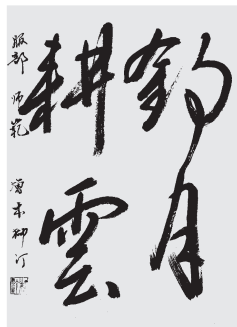 釣月
耕雲
服部 師範
増本神汀